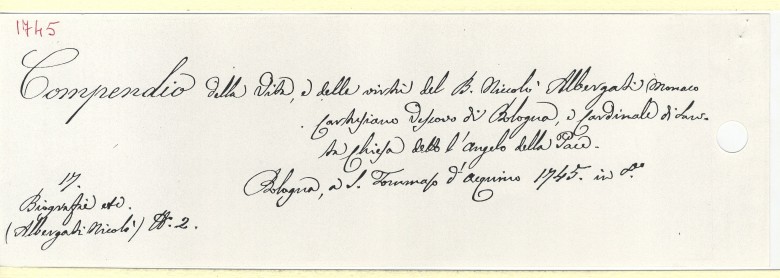 1745
Compendio della Vita, e delle virtù del B. Nicolò Albergati Monaco
Cartusiano Vescovo di Bologna, e Cardinale di San-
ta Chiesa detto l'angelo della Pace.
Bologna, a S. Tommaso d'Acquino 1745. in 8.°
17.
Biografie etc.
(Albergati Nicolò) N. 2.